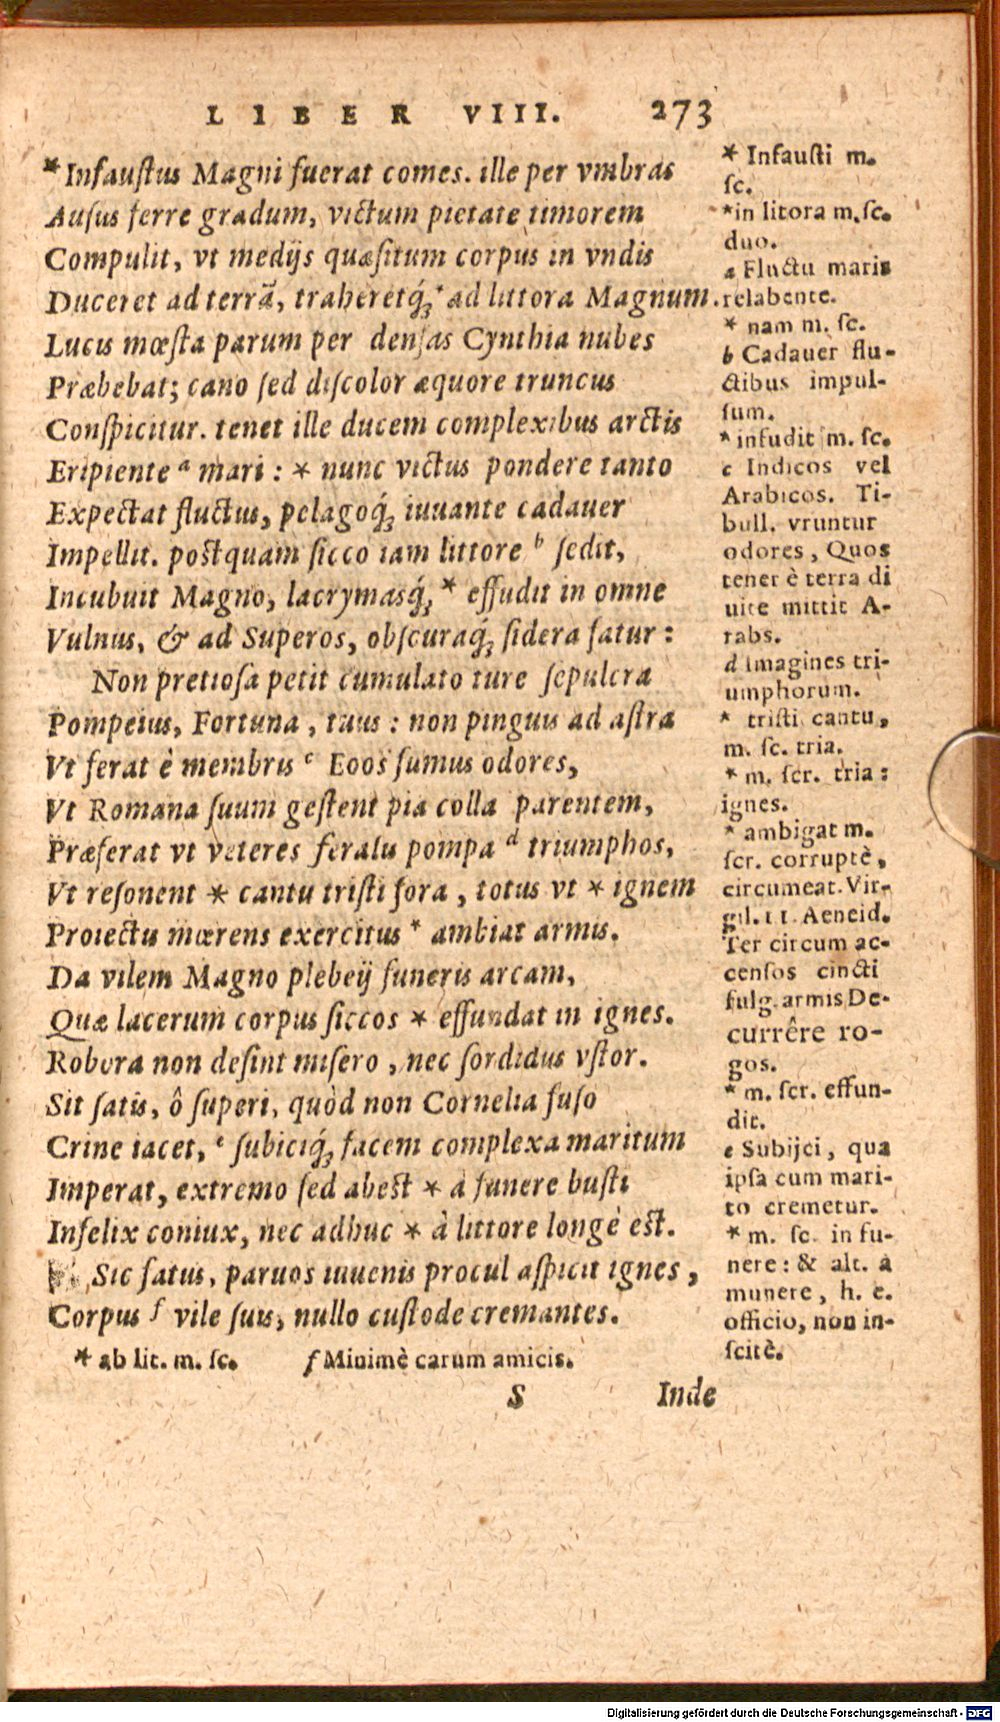 LIBER VIII. 273
*Infaustus Magni fuerat comes. ille per vmbras
Ausus ferre gradum, victum pietate timorem
Compulit, vt medijs quæsitum corpus in vndis
Duceret ad terrã, traheretq́; * ad littora Magnum.
Lucis mœsta parum per densas Cynthia nubes
Præbebat; cano sed discolor æquore truncus
Conspicitur. tenet ille ducem complexibus arctis
Eripiente a mari : * nunc victus pondere tanto
Expectat fluctus, pelagoq́; iuuante cadauer
Impellit. postquam sicco iam littore b sedit,
Incubuit Magno, lacrymasq́; * effudit in omne
Vulnus, & ad Superos, obscuraq́; sidera fatur :
Non pretiosa petit cumulato ture sepulcra
Pompeius, Fortuna, tuus : non pinguis ad astra
Vt ferat è membris c Eoos fumus odores,
Vt Romana suum gestent pia colla parentem,
Præferat vt veteres feralis pompa d triumphos,
Vt resonent * cantu tristi fora, totus vt * ignem
Proiectis mœrens exercitus * ambiat armis.
Da vilem Magno plebeij funeris arcam,
Quæ lacerum corpus siccos * effundat in ignes.
Robora non desint misero, nec sordidus vstor.
Sit satis, ô superi, quòd non Cornelia fuso
Crine iacet, e subiciq́; facem complexa maritum
Imperat, extremo sed abest * à funere busti
Infelix coniux, nec adhuc * à littore longè est.
Sic fatus, paruos iuuenis procul aspicit ignes,
Corpus f vile suis, nullo custode cremantes.
* ab lit. m. sc. f Minimè carum amicis.
S Inde
* Infausti m.
sc.
*in litora m. sc.
duo.
a Fluctu maris
relabente.
* nam m. sc.
b Cadauer flu-
ctibus impul-
sum.
* infudit m. sc.
c Indicos vel
Arabicos. Ti-
bull. vruntur
odores, Quos
tener è terra di
uite mittit A-
rabs.
d Imagines tri-
umphorum.
* tristi cantu,
m. sc. tria.
* m. scr. tria :
ignes.
* ambigat m.
scr. corruptè,
circumeat. Vir-
gil. 11. Aeneid.
Ter circum ac-
censos cincti
fulg. armis De-
currêre ro-
gos.
* m. scr. effun-
dit.
e Subijci, qua
ipsa cum mari-
to cremetur.
* m. sc. in fu-
nere : & alt. à
munere, h. e.
officio, non in-
scitè.
Digitalisierung gefördert durch die Deutsche Forschungsgemeinschaft - DFG